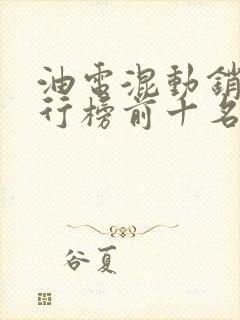 油電混動銷
行榜前十名
谷夏